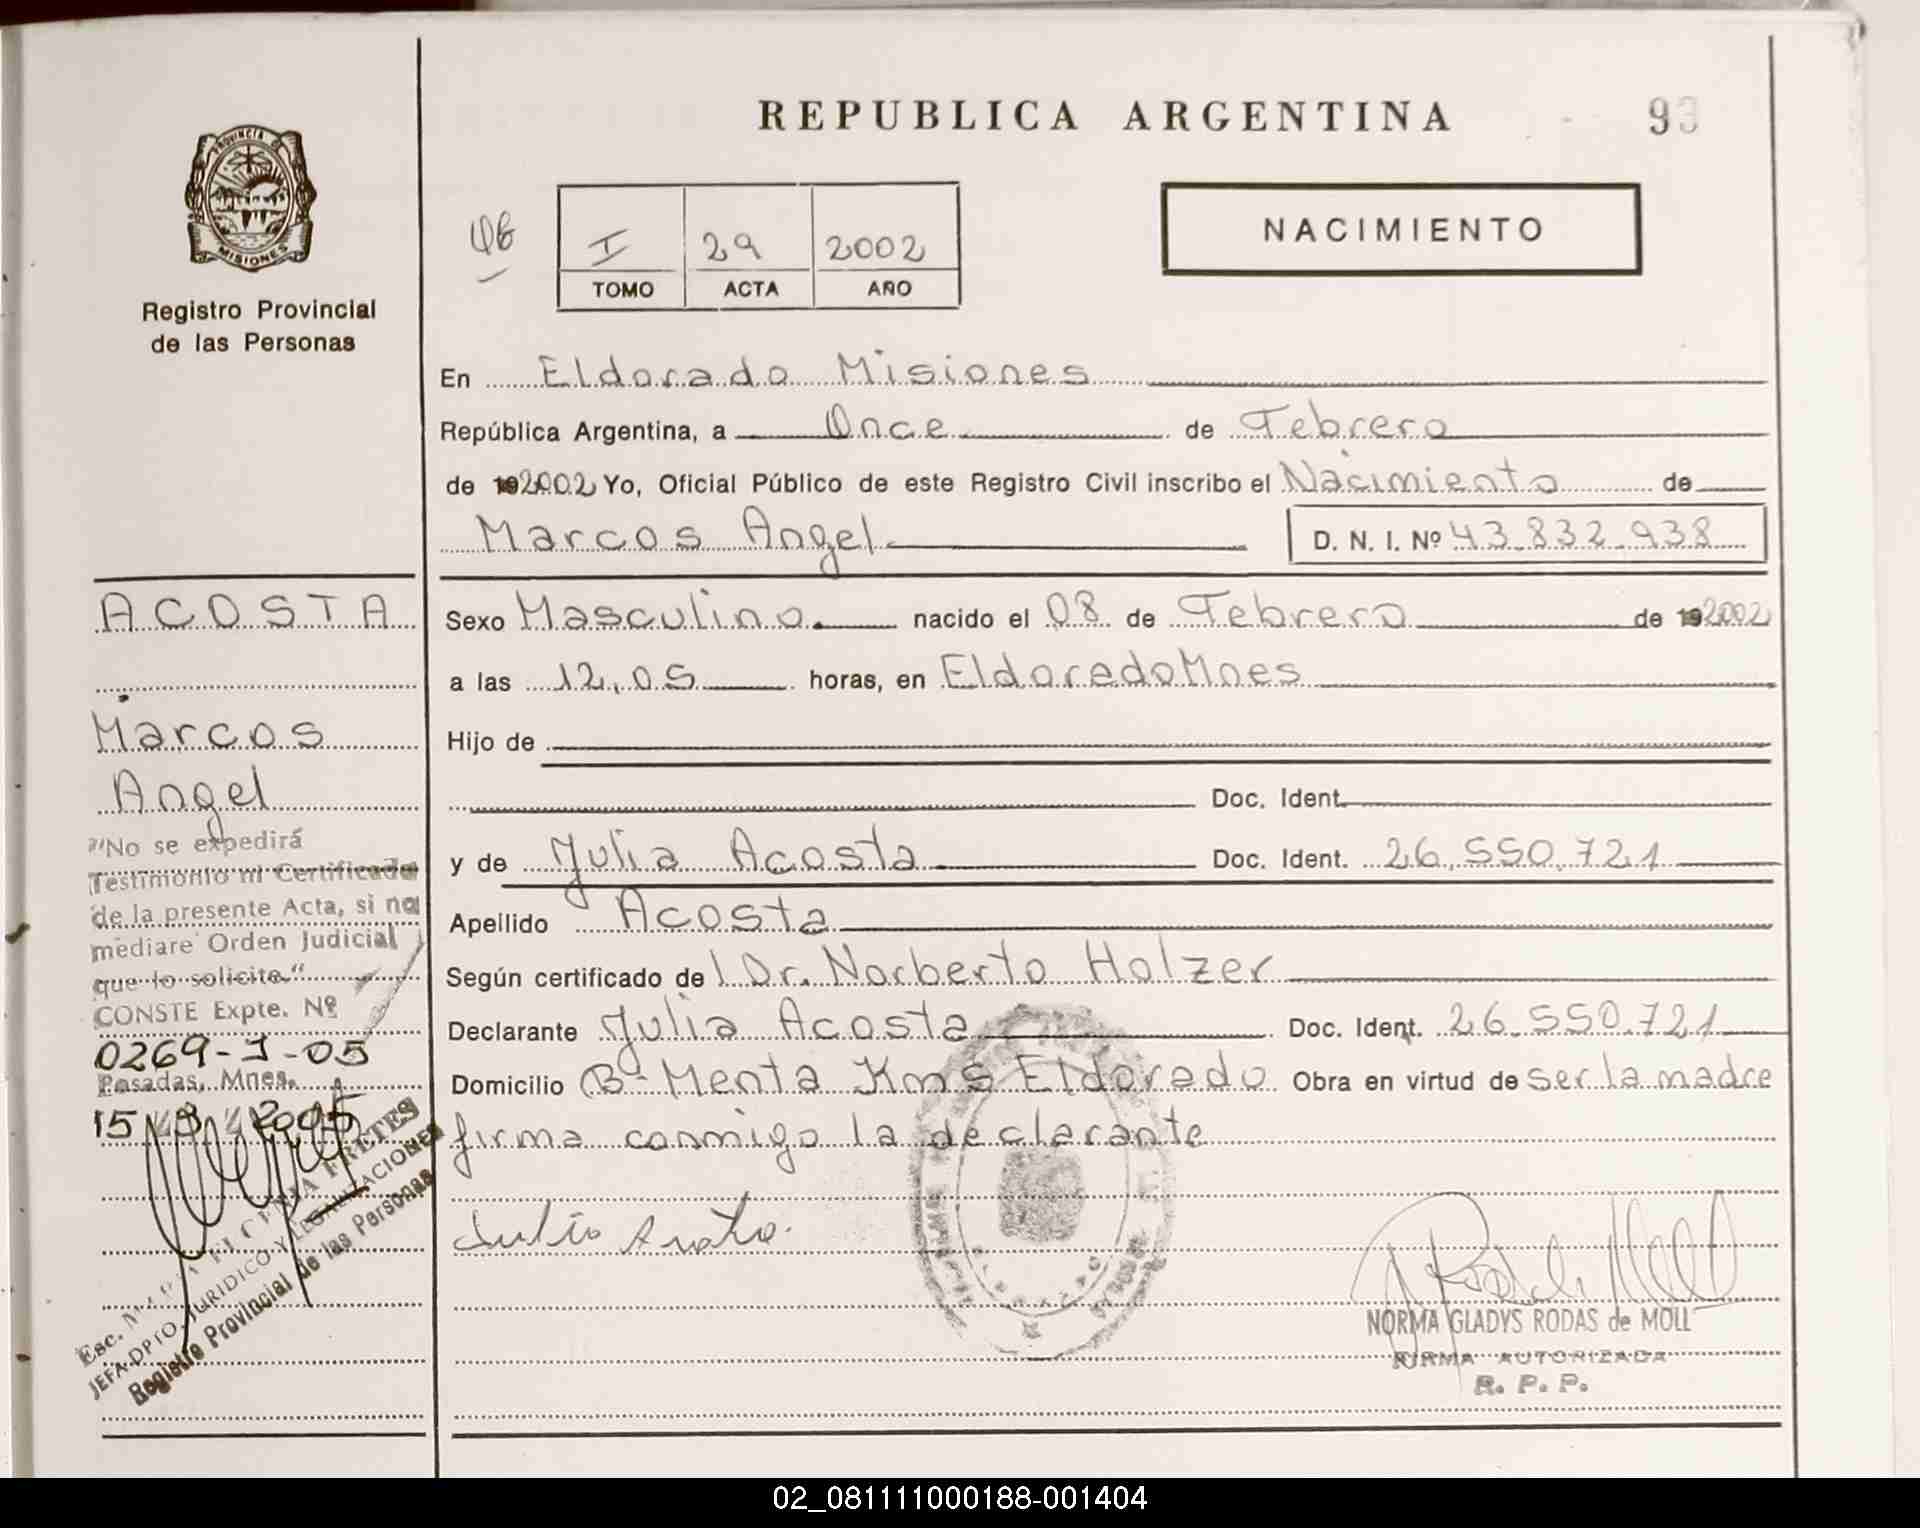 REPUBLICA ARGENTINA
93
PROVINCIA DE
MISIONES
Registro Provincial
de las Personas
I 29 2002
TOMO ACTA AÑO
NACIMIENTO
En Eldorado Misiones
República Argentina, a Once de Febrero
de 192002 Yo, Oficial Público de este Registro Civil inscribo el Nacimiento de
Marcos Angel D. N. I. Nº 43.832.938
ACOSTA
Marcos
Angel
"No se expedirá
Testimonio ni Certificado
de la presente Acta, si no
mediare Orden Judicial
que lo solicite."
CONSTE Expte. Nº
0269-J-05
Posadas, Mnes.
15 2005
FRETES
JEFA DPTO. JURIDICO Y LEGALIZACIONES
Registro Provincial de las Personas
Sexo Masculino. nacido el 08 de Febrero de 192002
a las 12,05 horas, en Eldorado Mnes
Hijo de
Doc. Ident.
y de Julia Acosta Doc. Ident. 26.550.721
Apellido Acosta
Según certificado de Dr. Norberto Holzer
Declarante Julia Acosta Doc. Ident. 26.550.721
Domicilio Bº Menta Km 5 Eldorado Obra en virtud de ser la madre
firma conmigo la declarante
NORMA GLADYS RODAS de MOLL
FIRMA AUTORIZADA
R. P. P.
02_081111000188-001404